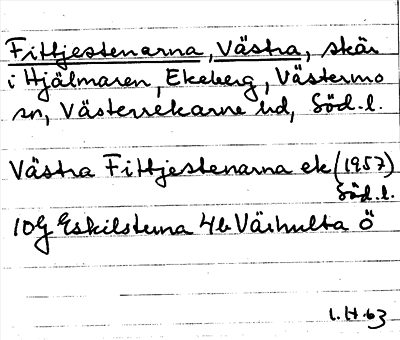 Fittjestenarna, Västra, skär
i Hjälmaren, Ekeberg, Västermo
sn, Västerrekarne hd, Söd. l.
Västra Fittjestenarna ek (1957)
Söd. l.
10G Eskilstuna 4b Väihulta Ö
l. H. 63